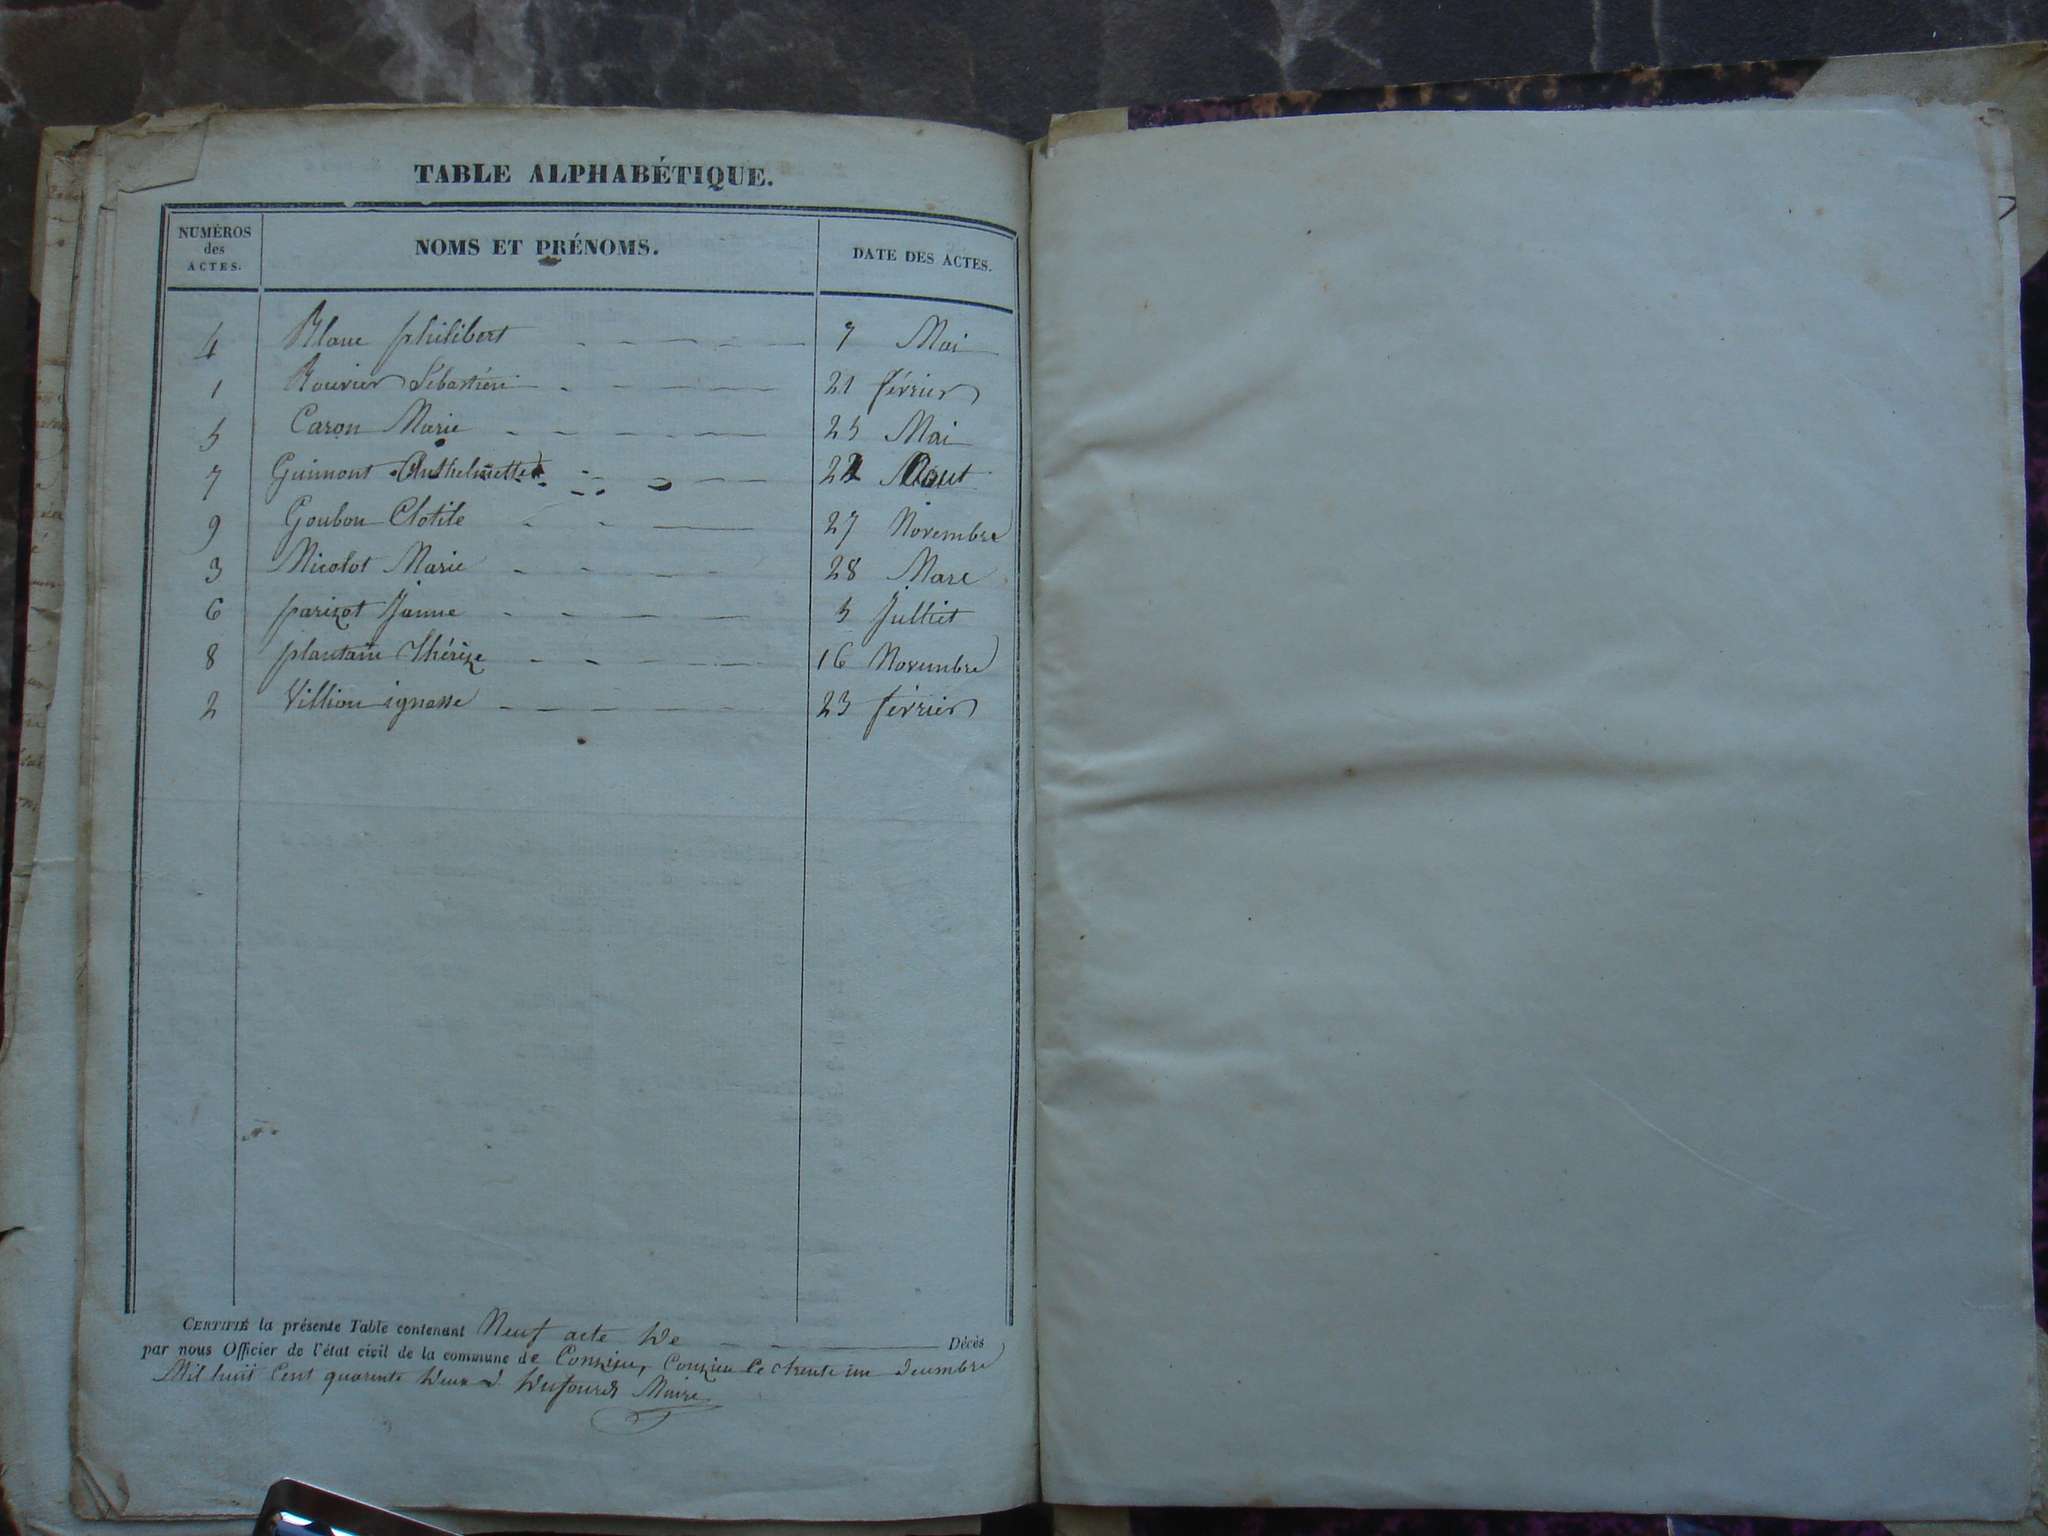 TABLE ALPHABÉTIQUE.
NUMÉROS des ACTES. NOMS ET PRÉNOMS. DATE DES ACTES.
4 Blanc philibert 7 Mai
1 Bouvier Sébastien 21 février
5 Caron Marie 25 Mai
7 Guimont Anthelmette 22 Aout
9 Goubou Clotile 27 Novembre
3 Nicolot Marie 28 Mars
6 parizot Janne 5 Julliet
8 plantain Thérèze 16 Novembre
2 Villiou ignasse 23 février
CERTIFIÉ la présente Table contenant Neuf acte De Décès
par nous Officier de l'état civil de la commune de Conzieu, Conzieu le trente un decembre
Mil huit Cent quarente Deux Maire